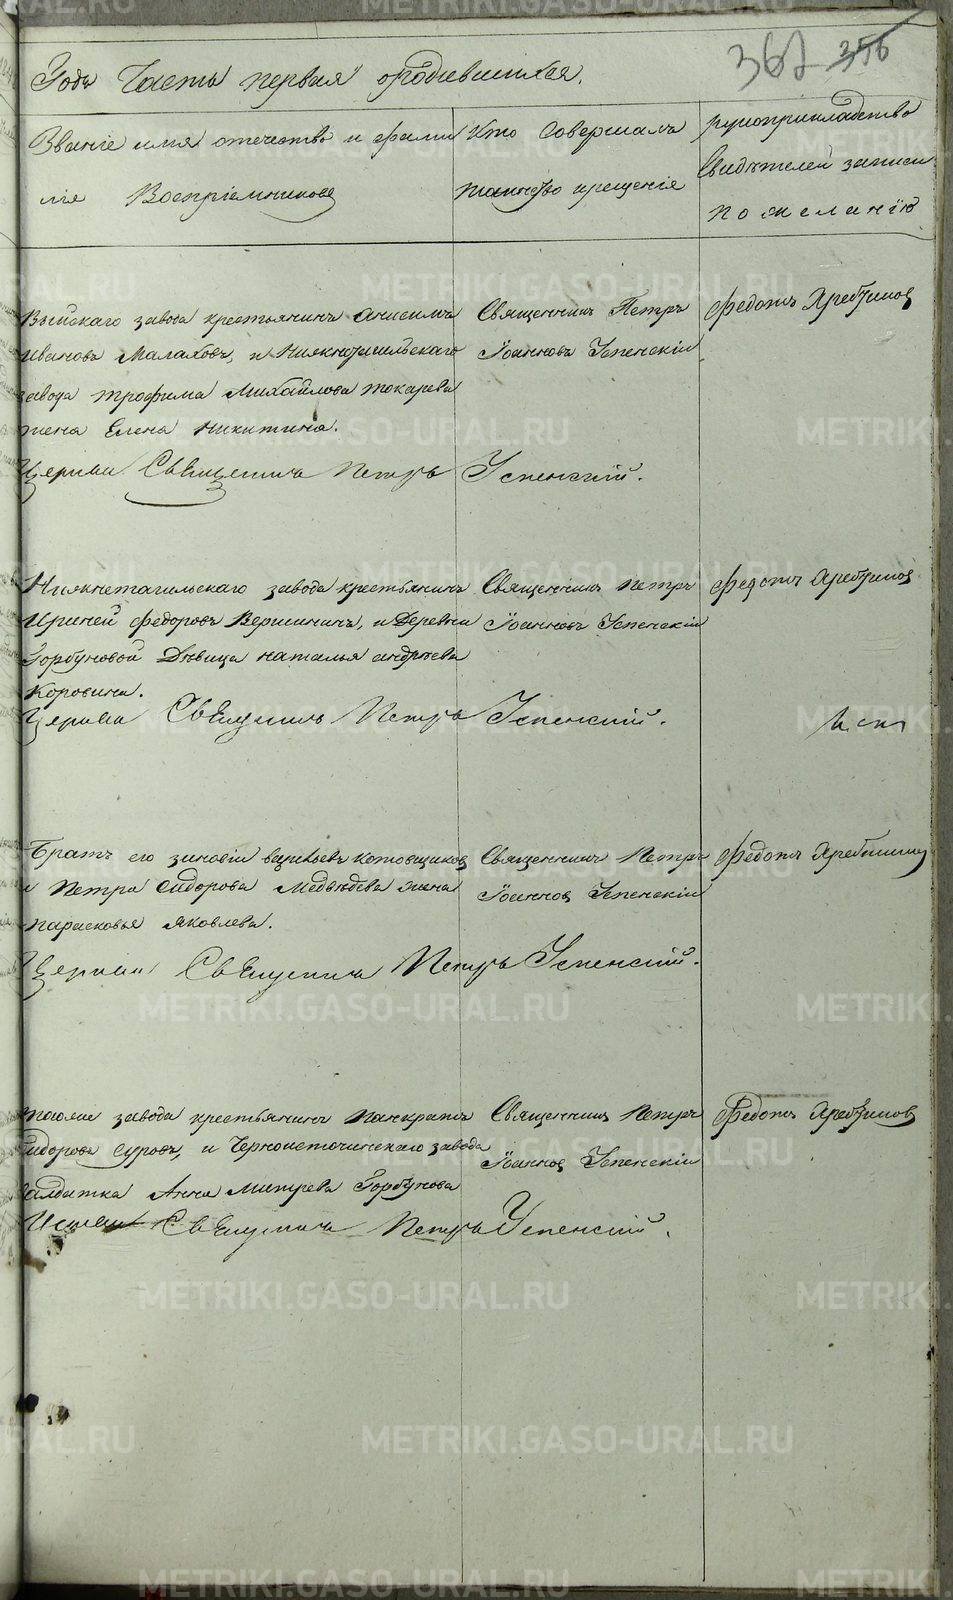 362 356
Года Часть первая о родившихся.
Званіе имя отечество и фами
лія Воспріемниковъ
Кто Совершалъ
таинство крещенія
рукоприкладство
Свидѣтелей записи
по желанію
Выйскаго завода крестьянинъ Анисимъ
Ивановъ Малаховъ, и Нижнетагильскаго
завода трофима Михайлова токарева
жена Елена Никитина.
Священникъ Петръ
Іоанновъ Успенскій
Федотъ Хребтиковъ
Церкви Священникъ Петръ Успенскій.
Нижнетагильскаго завода крестьянинъ
Ириней Федоровъ Вершининъ, и Деревни
Горбуновой Дѣвица наталья андреева
Коровина.
Священникъ Петръ
Іоанновъ Успенскій
Федотъ Хребтиковъ
Церкви Священникъ Петръ Успенскій.
Братъ его зиновій васильевъ котовщиковъ
и Петра Сидорова Медвѣдева жена
парасковья Яковлева.
Священникъ Петръ
Іоанновъ Успенскій
Федотъ Хребтиковъ
Церкви Священникъ Петръ Успенскій.
завода крестьянинъ Панкратъ
Сидоровъ Суровъ, и Черноисточинскаго завода
салдатка Анна Митрева Горбунова
Священникъ Петръ
Іоанновъ Успенскій
Федотъ Хребтиковъ
Священникъ Петръ Успенскій.
METRIKI.GASO-URAL.RU